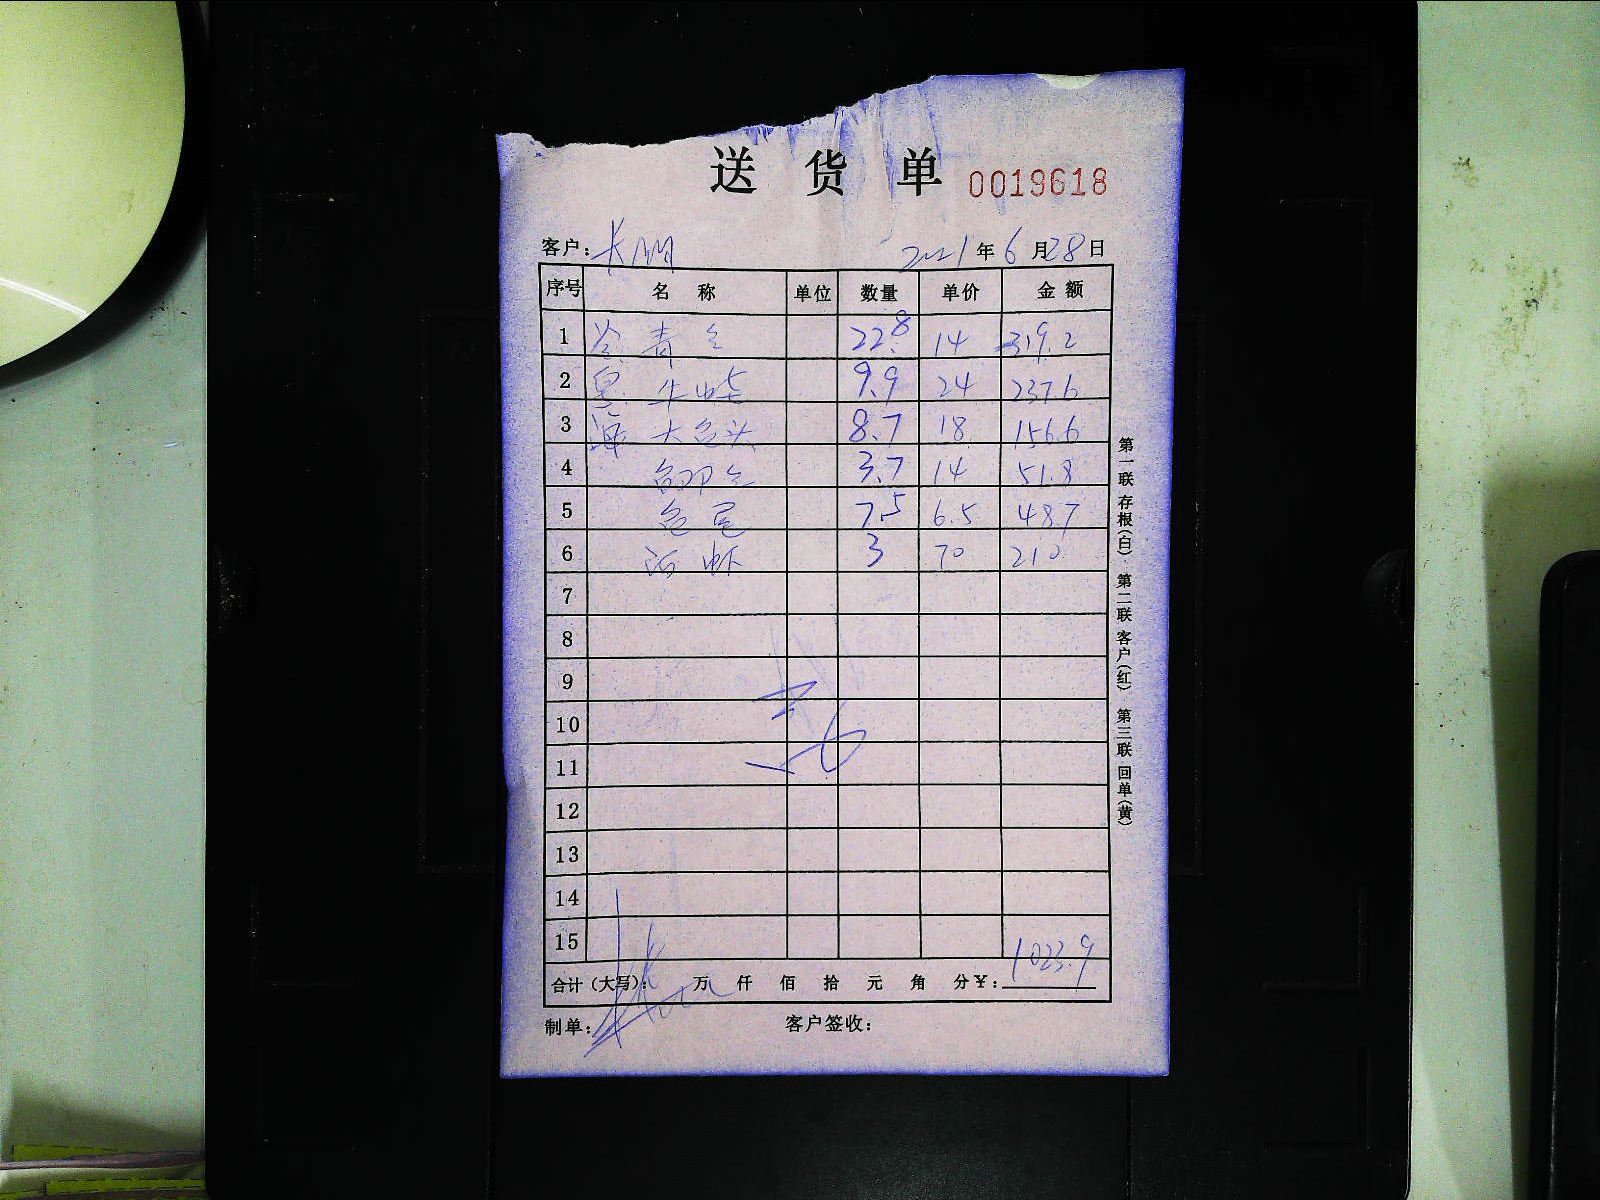 送 货 单 0019618
客户： 2021 年 6 月 28 日
序号 名 称 单位 数量 单价 金 额
1 22.8 14 319.2
2 黑 9.9 24 237.6
3 海 大鱼头 8.7 18 156.6
4 3.7 14 51.8
5 鱼尾 7.5 6.5 48.7
6 河虾 3 70 210
7
8
9
10
11
12
13
14
15
合计（大写）： 万 仟 佰 拾 元 角 分 ￥：1023.9
制单： 客户签收：
第一联 存根（白） 第二联 客户（红） 第三联 回单（黄）